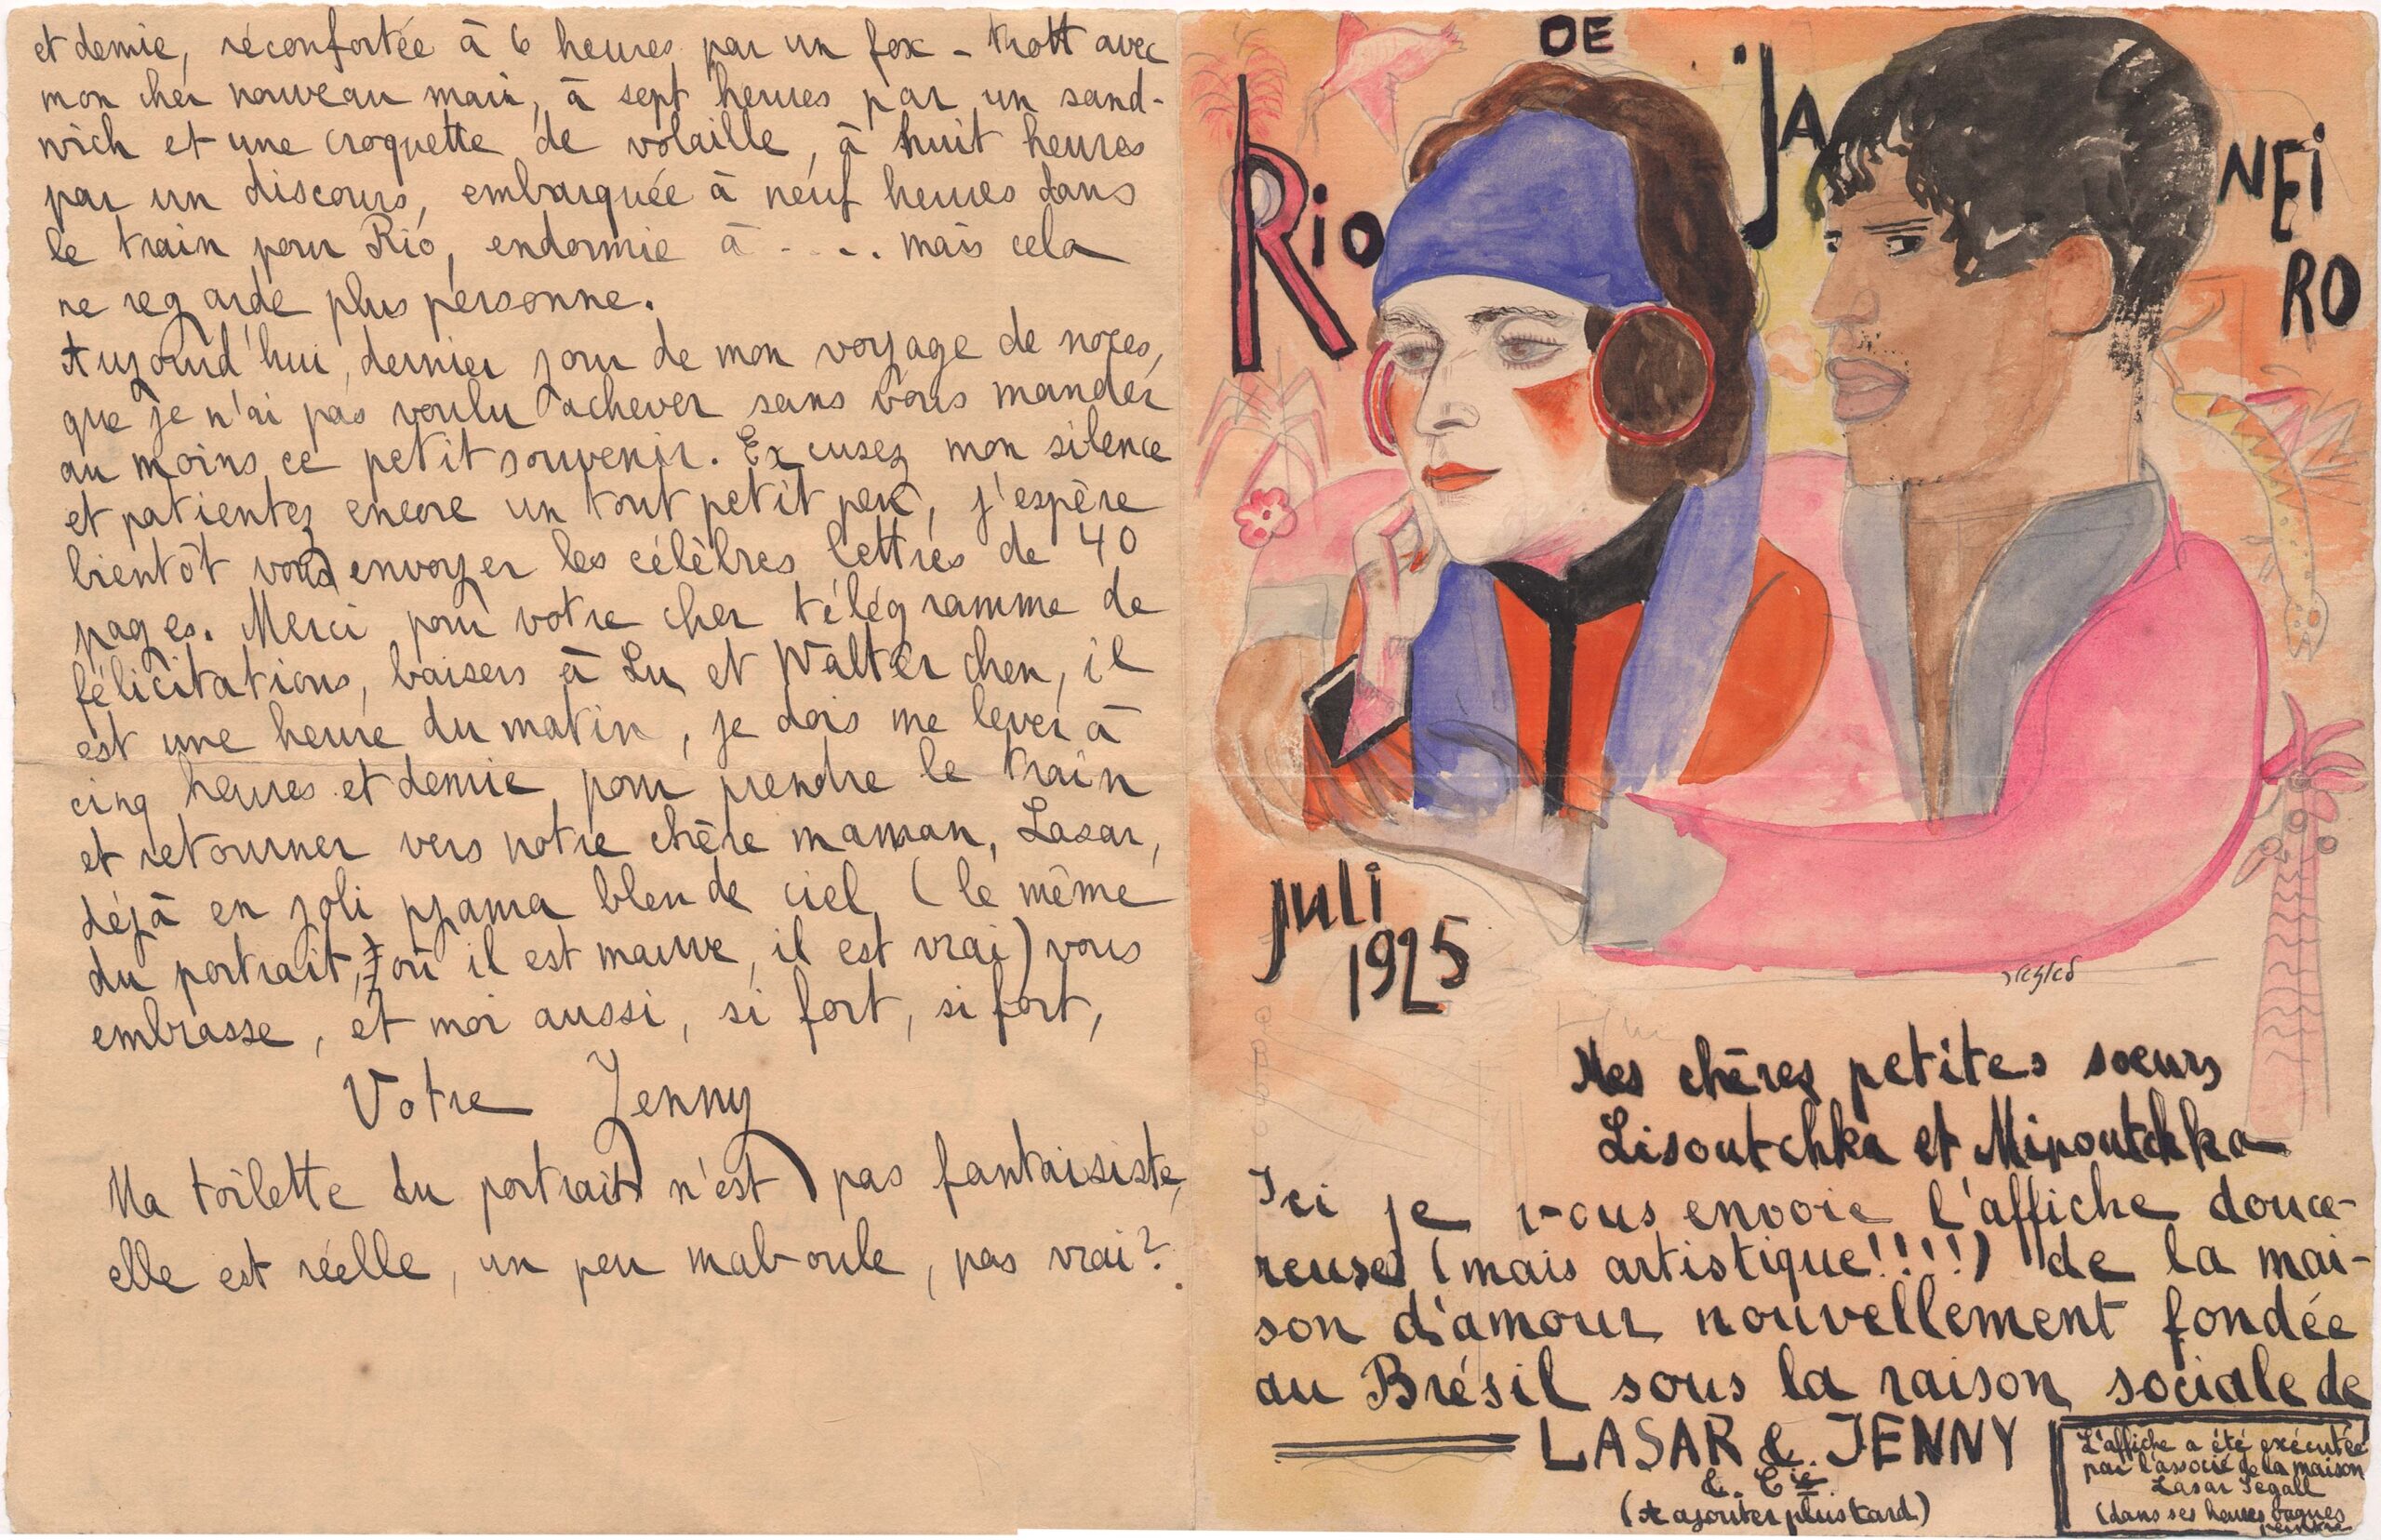 et demie, réconfortée à 6 heures par un fox-trott avec
mon cher nouveau mari, à sept heures par un sand-
wich et une croquette de volaille, à huit heures
par un discours, embarquée à neuf heures dans
le train pour Rio, endormie à .... mais cela
ne regarde plus personne.
Aujourd'hui, dernier jour de mon voyage de noces,
que je n'ai pas voulu achever sans vous mander
au moins ce petit souvenir. Excusez mon silence
et patientez encore un tout petit peu, j'espère
bientôt vous envoyer les célèbres lettres de 40
pages. Merci pour votre cher télégramme de
félicitations, baisers à Lu et Walterchen, il
est une heure du matin, je dois me lever à
cinq heures et demie pour prendre le train
et retourner vers notre chère maman, Lasar,
déjà en joli pyjama bleu de ciel (le même
du portrait, où il est mauve, il est vrai) vous
embrasse, et moi aussi, si fort, si fort,
Votre Jenny
Ma toilette du portrait n'est pas fantaisiste,
elle est réelle, un peu maboule, pas vrai?
Rio
DE
JA
NEI
RO
juli
1925
Mes chères petites soeurs
Lisoutchka et Mipoutchka
Ici je vous envoie l'affiche douce-
reuse (mais artistique!!!!) de la mai-
son d'amour nouvellement fondée
au Brésil sous la raison sociale de
LASAR & JENNY
& Cie
(A ajouter plus tard)
L'affiche a été exécutée
par l'associé de la maison
Lasar Segall
(dans ses heures vagues
peintre